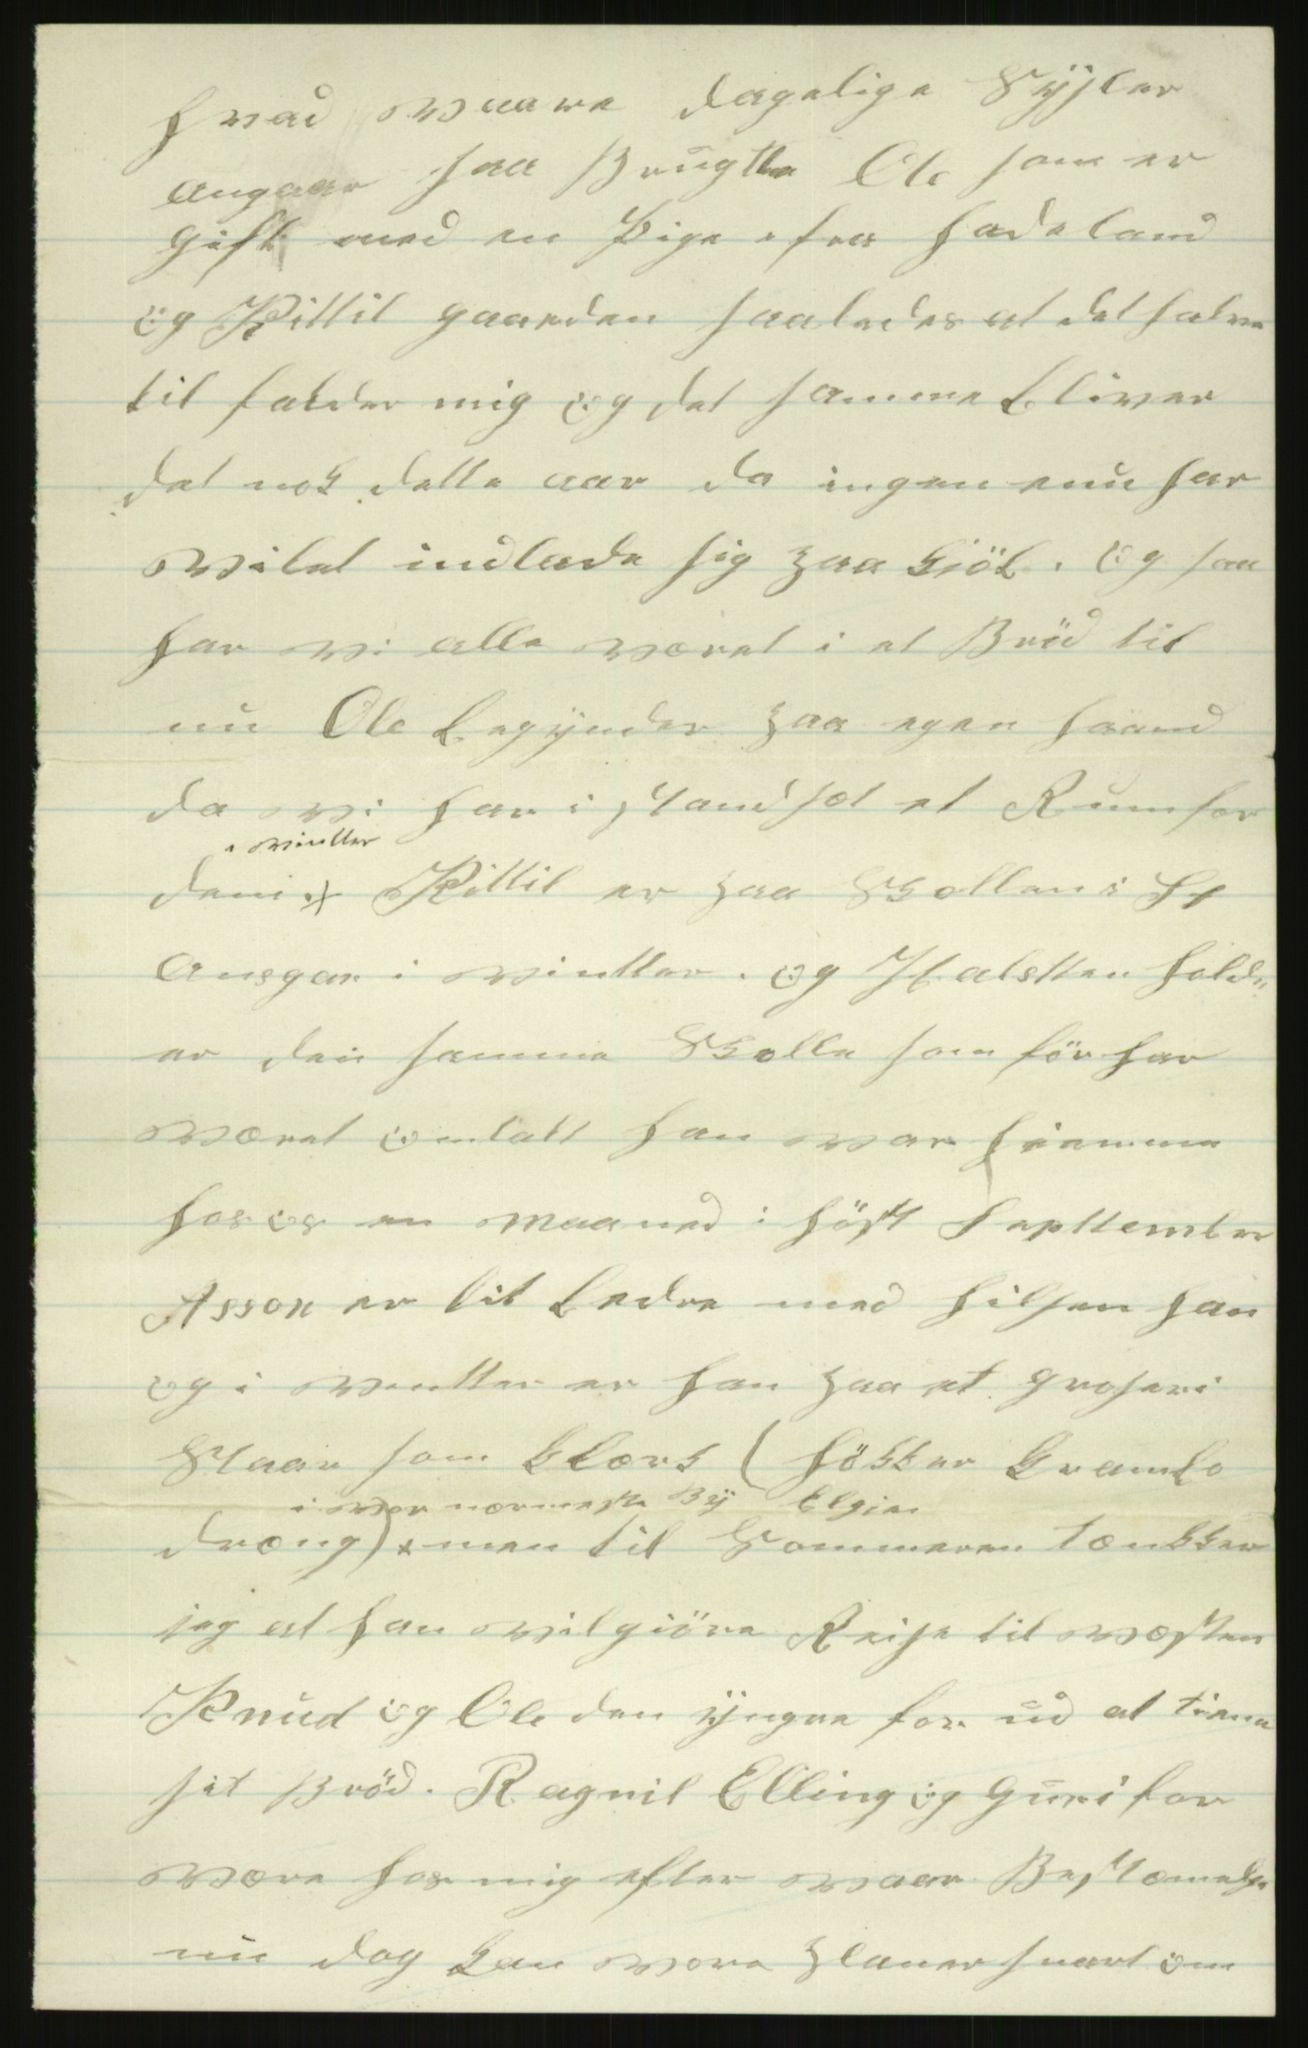 hvad waare dagelige Sysler
angaar saa Brugtte Ole som er
gift med en Pige fra Hadeland
og Kittil gaarden saaledes at det halve
til falder mig og det samme bliver
det nok dette aar da ingen enu har
wilet indlade sig paa kiöb. og saa
har wi alle wæret i et Bröd til
nu Ole begynder paa egen haand
da wi har i standsæt et Rum for
i wintter
dem x Kittil er paa Skollen i St
Ansgar i wintter. og Halstten hold„
er den samme Skolle som för har
wæret omtalt han war hiemme
hos os en maaned i höst Septtember
Asson er lit bedre med hilsen han
og i wintter er han paa et groseri
Staar som klærk (Hökker Krambo
i wor nærmeste By Elgin
dræng) x men til Sommeren tænkker
jeg at han wil giöre Reise til westen
Knud og Ole den yngre for ud at tiene
sit Bröd. Ragnil Elling og Guri for
være hos mig efter waar Bestæmelse
nu dog kan wore planer snart om